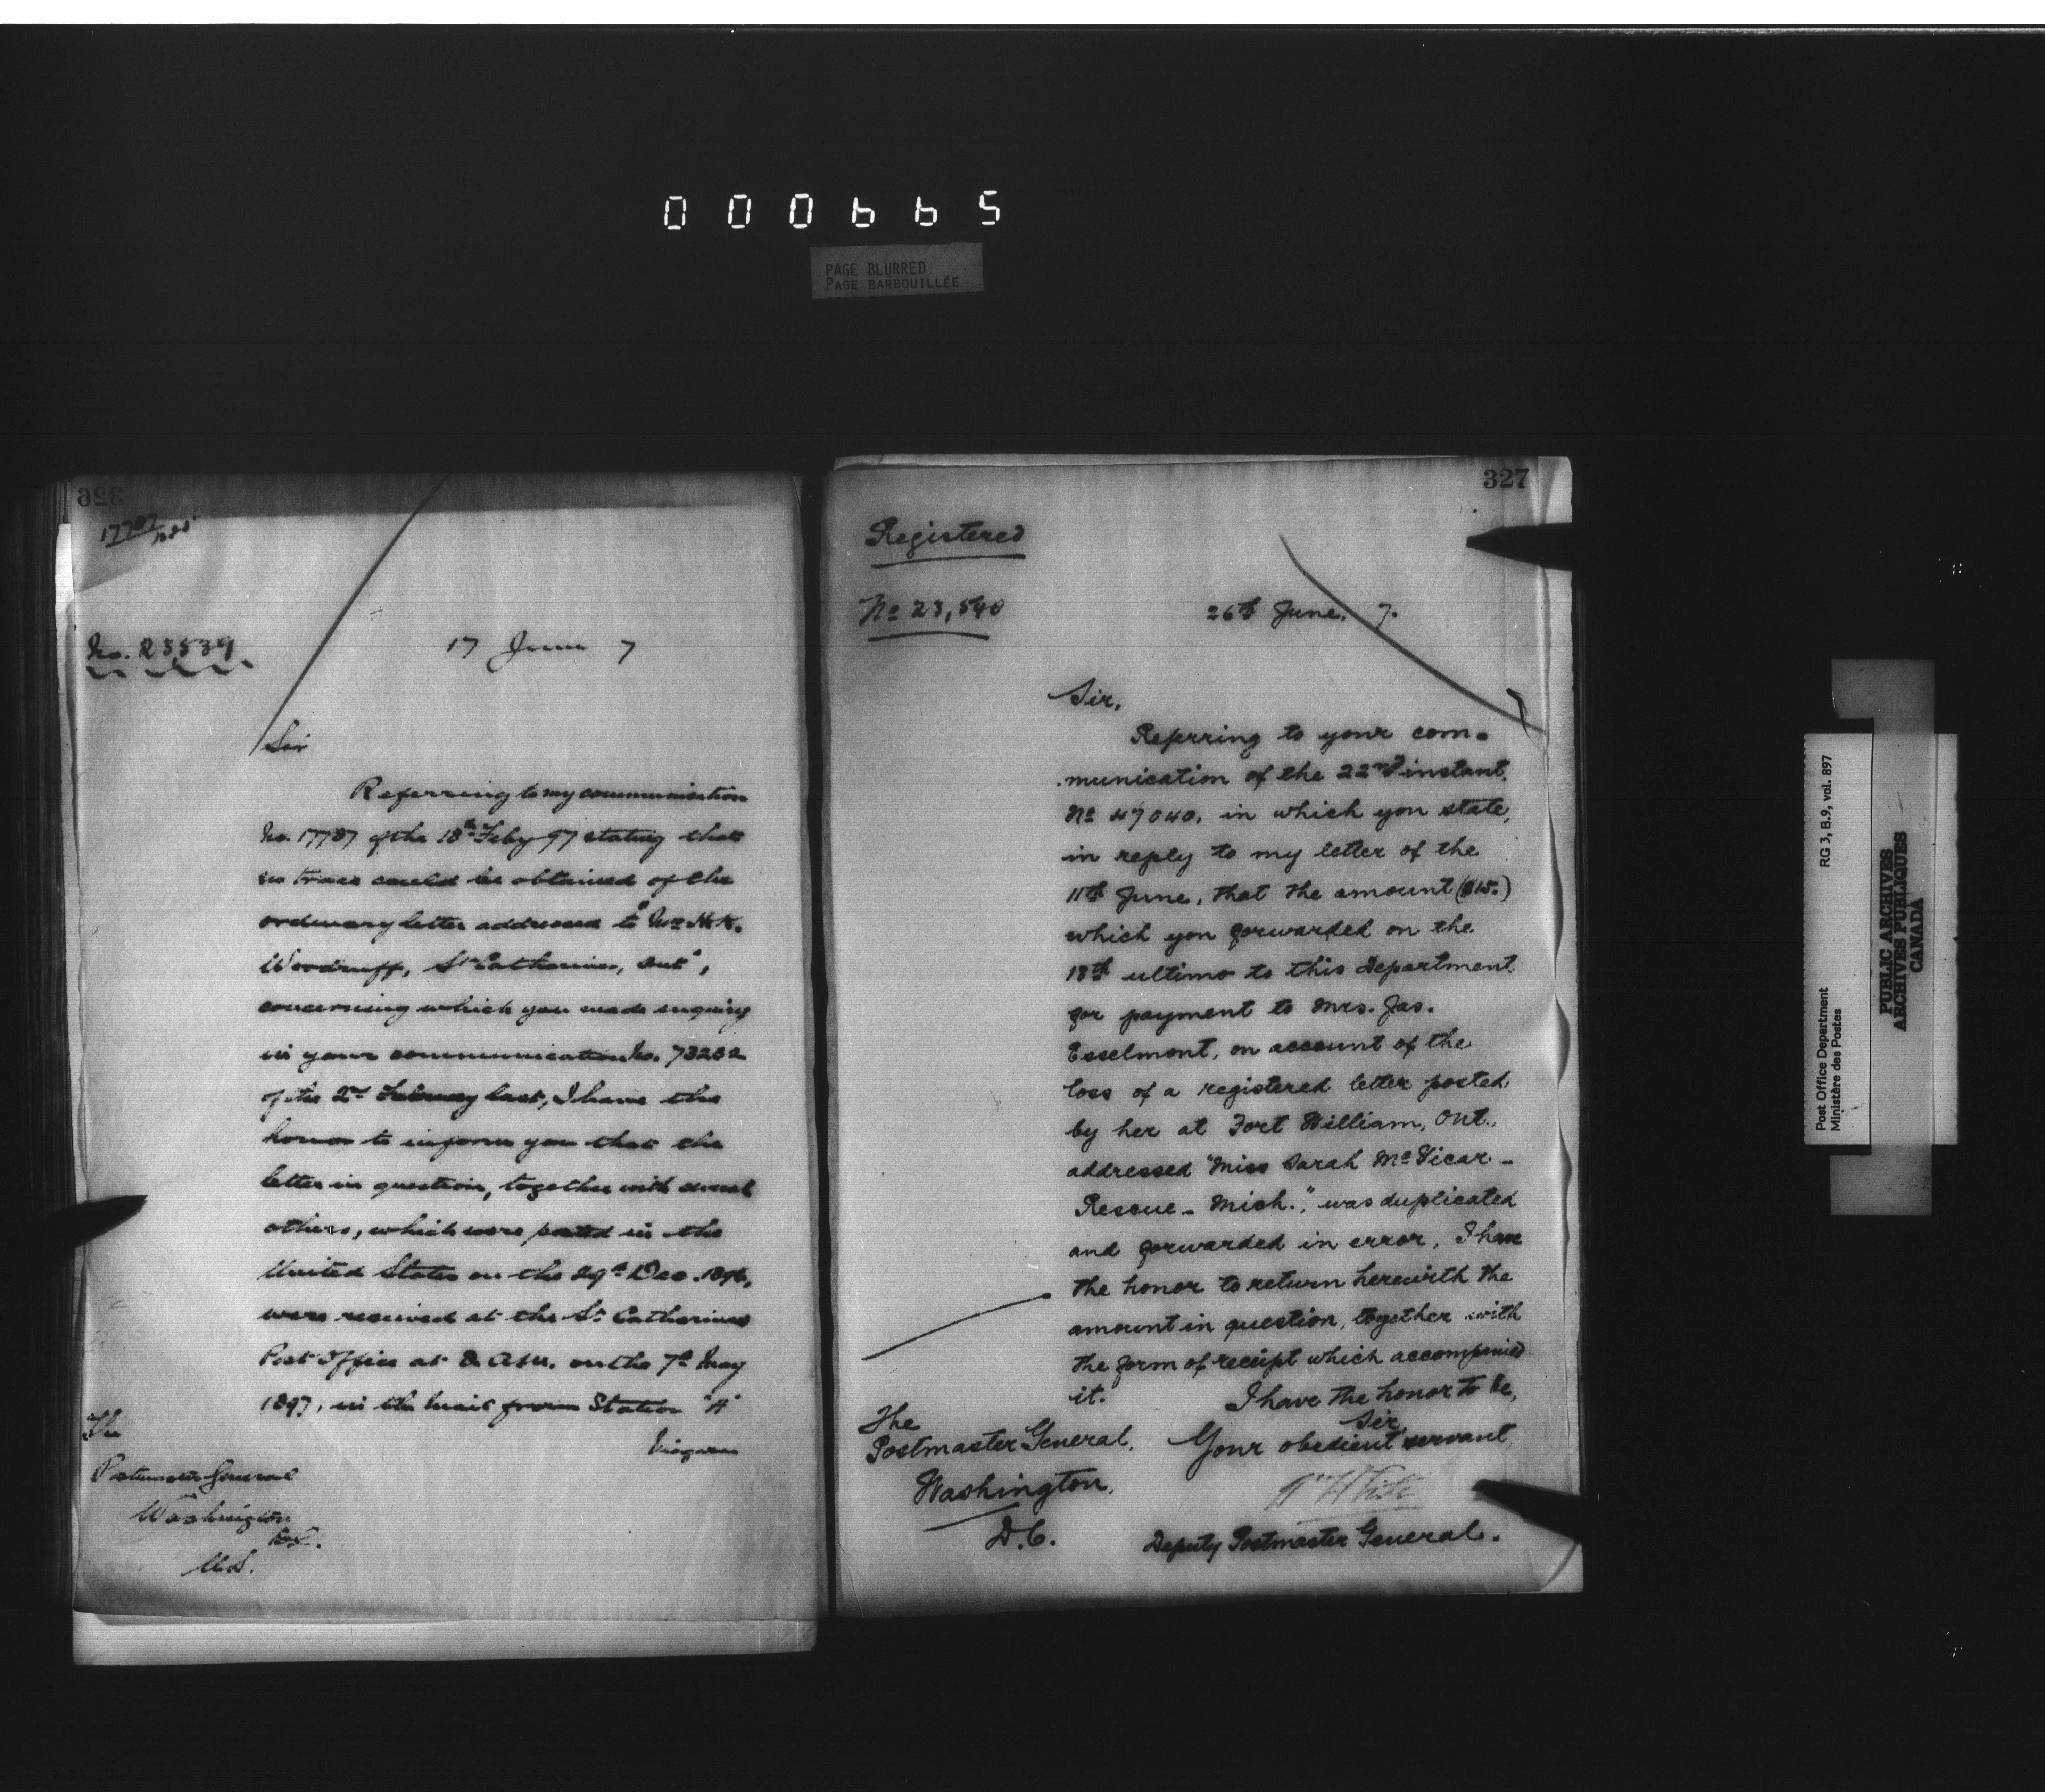 000665
PAGE BLURRED
PAGE BARBOUILLÉE
326
17787
No. 23539
17 June 7
Sir
Referring to my communication
No. 17787 of the 18th Feby 97 stating that
no trace could be obtained of the
ordinary letter addressed to "Mrs H.K.
Woodruff, St Catharines, Ont",
concerning which you made inquiry
in your communication No. 73232
of the 2nd February last, I have the
honor to inform you that the
letter in question, together with several
others, which were posted in the
United States on the 29th Dec. 1896,
were received at the St Catharines
Post Office at 8 a.m. on the 7th May
1897, in the mail from Station "A"
Niagara
The
Postmaster General
Washington
D.C.
U.S.
327
Registered
No 23,540
26th June, 7.
Sir,
Referring to your com-
munication of the 22nd instant,
No 47040, in which you state,
in reply to my letter of the
11th June, that the amount ($15.)
which you forwarded on the
18th ultimo to this Department
for payment to Mrs. Jas.
Esselmont, on account of the
loss of a registered letter posted
by her at Fort William, Ont.,
addressed "Miss Sarah McVicar -
Rescue - Mich.", was duplicated
and forwarded in error, I have
the honor to return herewith the
amount in question, together with
the form of receipt which accompanied
it.
I have the honor to be,
Sir,
Your obedient servant,
Wm White
Deputy Postmaster General.
The
Postmaster General,
Washington,
D.C.
Post Office Department
Ministère des Postes
RG 3, B.9, vol. 897
PUBLIC ARCHIVES
ARCHIVES PUBLIQUES
CANADA